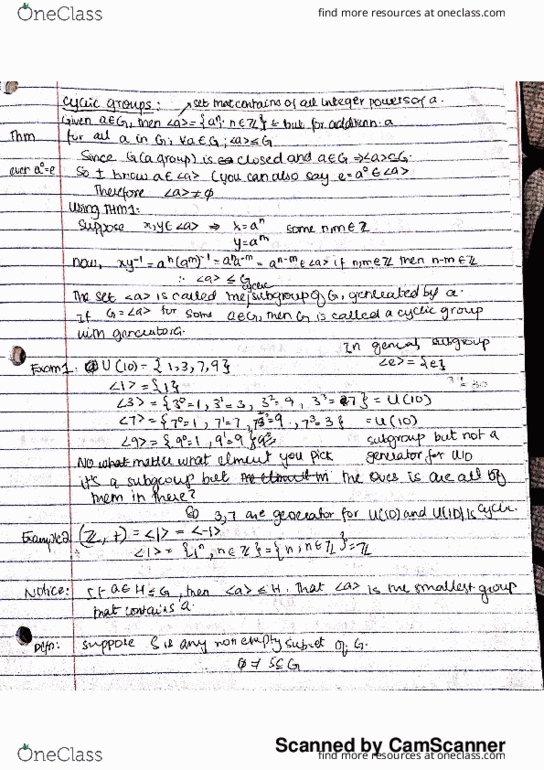 OneClass
find more resources at oneclass.com
cyclic groups: set that contains of all integer powers of a.
Given a∈G, then <a> = {aⁿ: n∈Z} but for addition a
Thm for all a in G; ∀a∈G; <a>≤G
Since G(a group) is closed and a∈G ⇒ <a>⊆G.
even a⁰=e So I know a∈<a> (you can also say e=a⁰∈<a>
Therefore <a>≠∅
Using THM1:
Suppose x,y∈<a> ⇒ x=aⁿ some n,m∈Z
y=aᵐ
now, xy⁻¹ = aⁿ(aᵐ)⁻¹ = aⁿa⁻ᵐ = aⁿ⁻ᵐ∈<a> if n,m∈Z then n-m∈Z
∴ <a> ≤ G
cyclic
The set <a> is called the subgroup of G, generated by a.
If G=<a> for some a∈G, then G is called a cyclic group
with generator G.
In general, subgroup
<e> = {e}
Exam 1. U(10) = {1,3,7,9}
<1> = {1}
<3> = {3⁰=1, 3¹=3, 3²=9, 3³=7} = U(10)
<7> = {7⁰=1, 7¹=7, 7²=9, 7³=3} = U(10)
<9> = {9⁰=1, 9¹=9} subgroup but not a
generator for U10
No what matter what elment you pick
it's a subgroup but the ones is are all of
them in there?
So 3,7 are generator for U(10) and U(10) is cyclic.
Example 2 (Z, +) = <1> = <-1>
<1> = {1ⁿ, n∈Z} = {n, n∈Z} = Z
Notice: If a∈H≤G, then <a>≤H. That <a> is the smallest group
that contains a.
Defn: suppose S is any non empty subset of G.
∅≠S⊆G
Scanned by CamScanner
OneClass
find more resources at oneclass.com